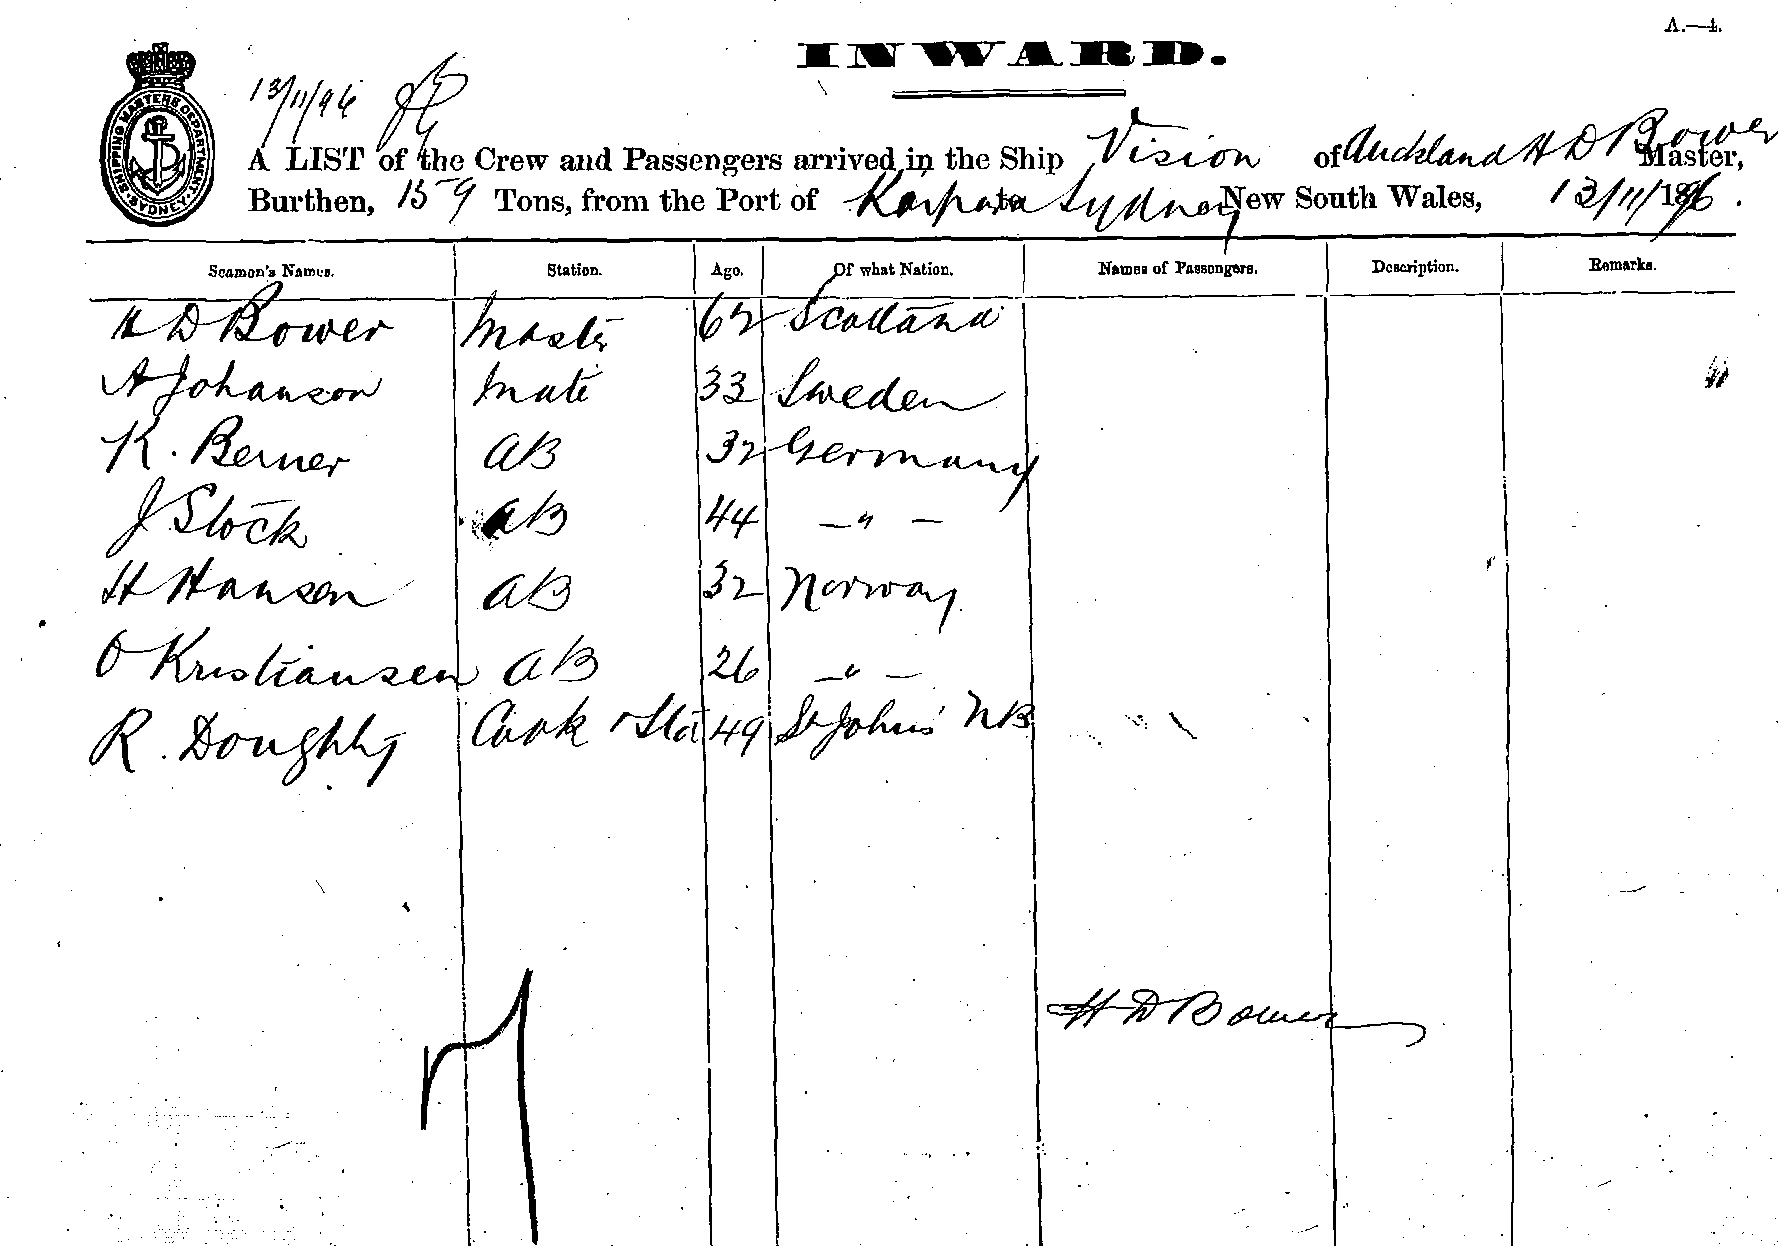 A.—4.
INWARD.
13/11/96
SHIPPING MASTERS DEPARTMENT SYDNEY
A LIST of the Crew and Passengers arrived in the Ship Vision of Auckland H D Bower Master,
Burthen, 159 Tons, from the Port of Kaipara to Sydney New South Wales, 13/11/1896.
Seamen's Names. Station. Age. Of what Nation. Names of Passengers. Description. Remarks.
H D Bower Master 62 Scotland
A Johanson Mate 33 Sweden
K. Berner AB 32 Germany
J Stock AB 44 —"—
H Hansen AB 32 Norway
O Kristiansen AB 26 —"—
R. Doughty Cook & Std 49 St Johns NB
H D Bower
7